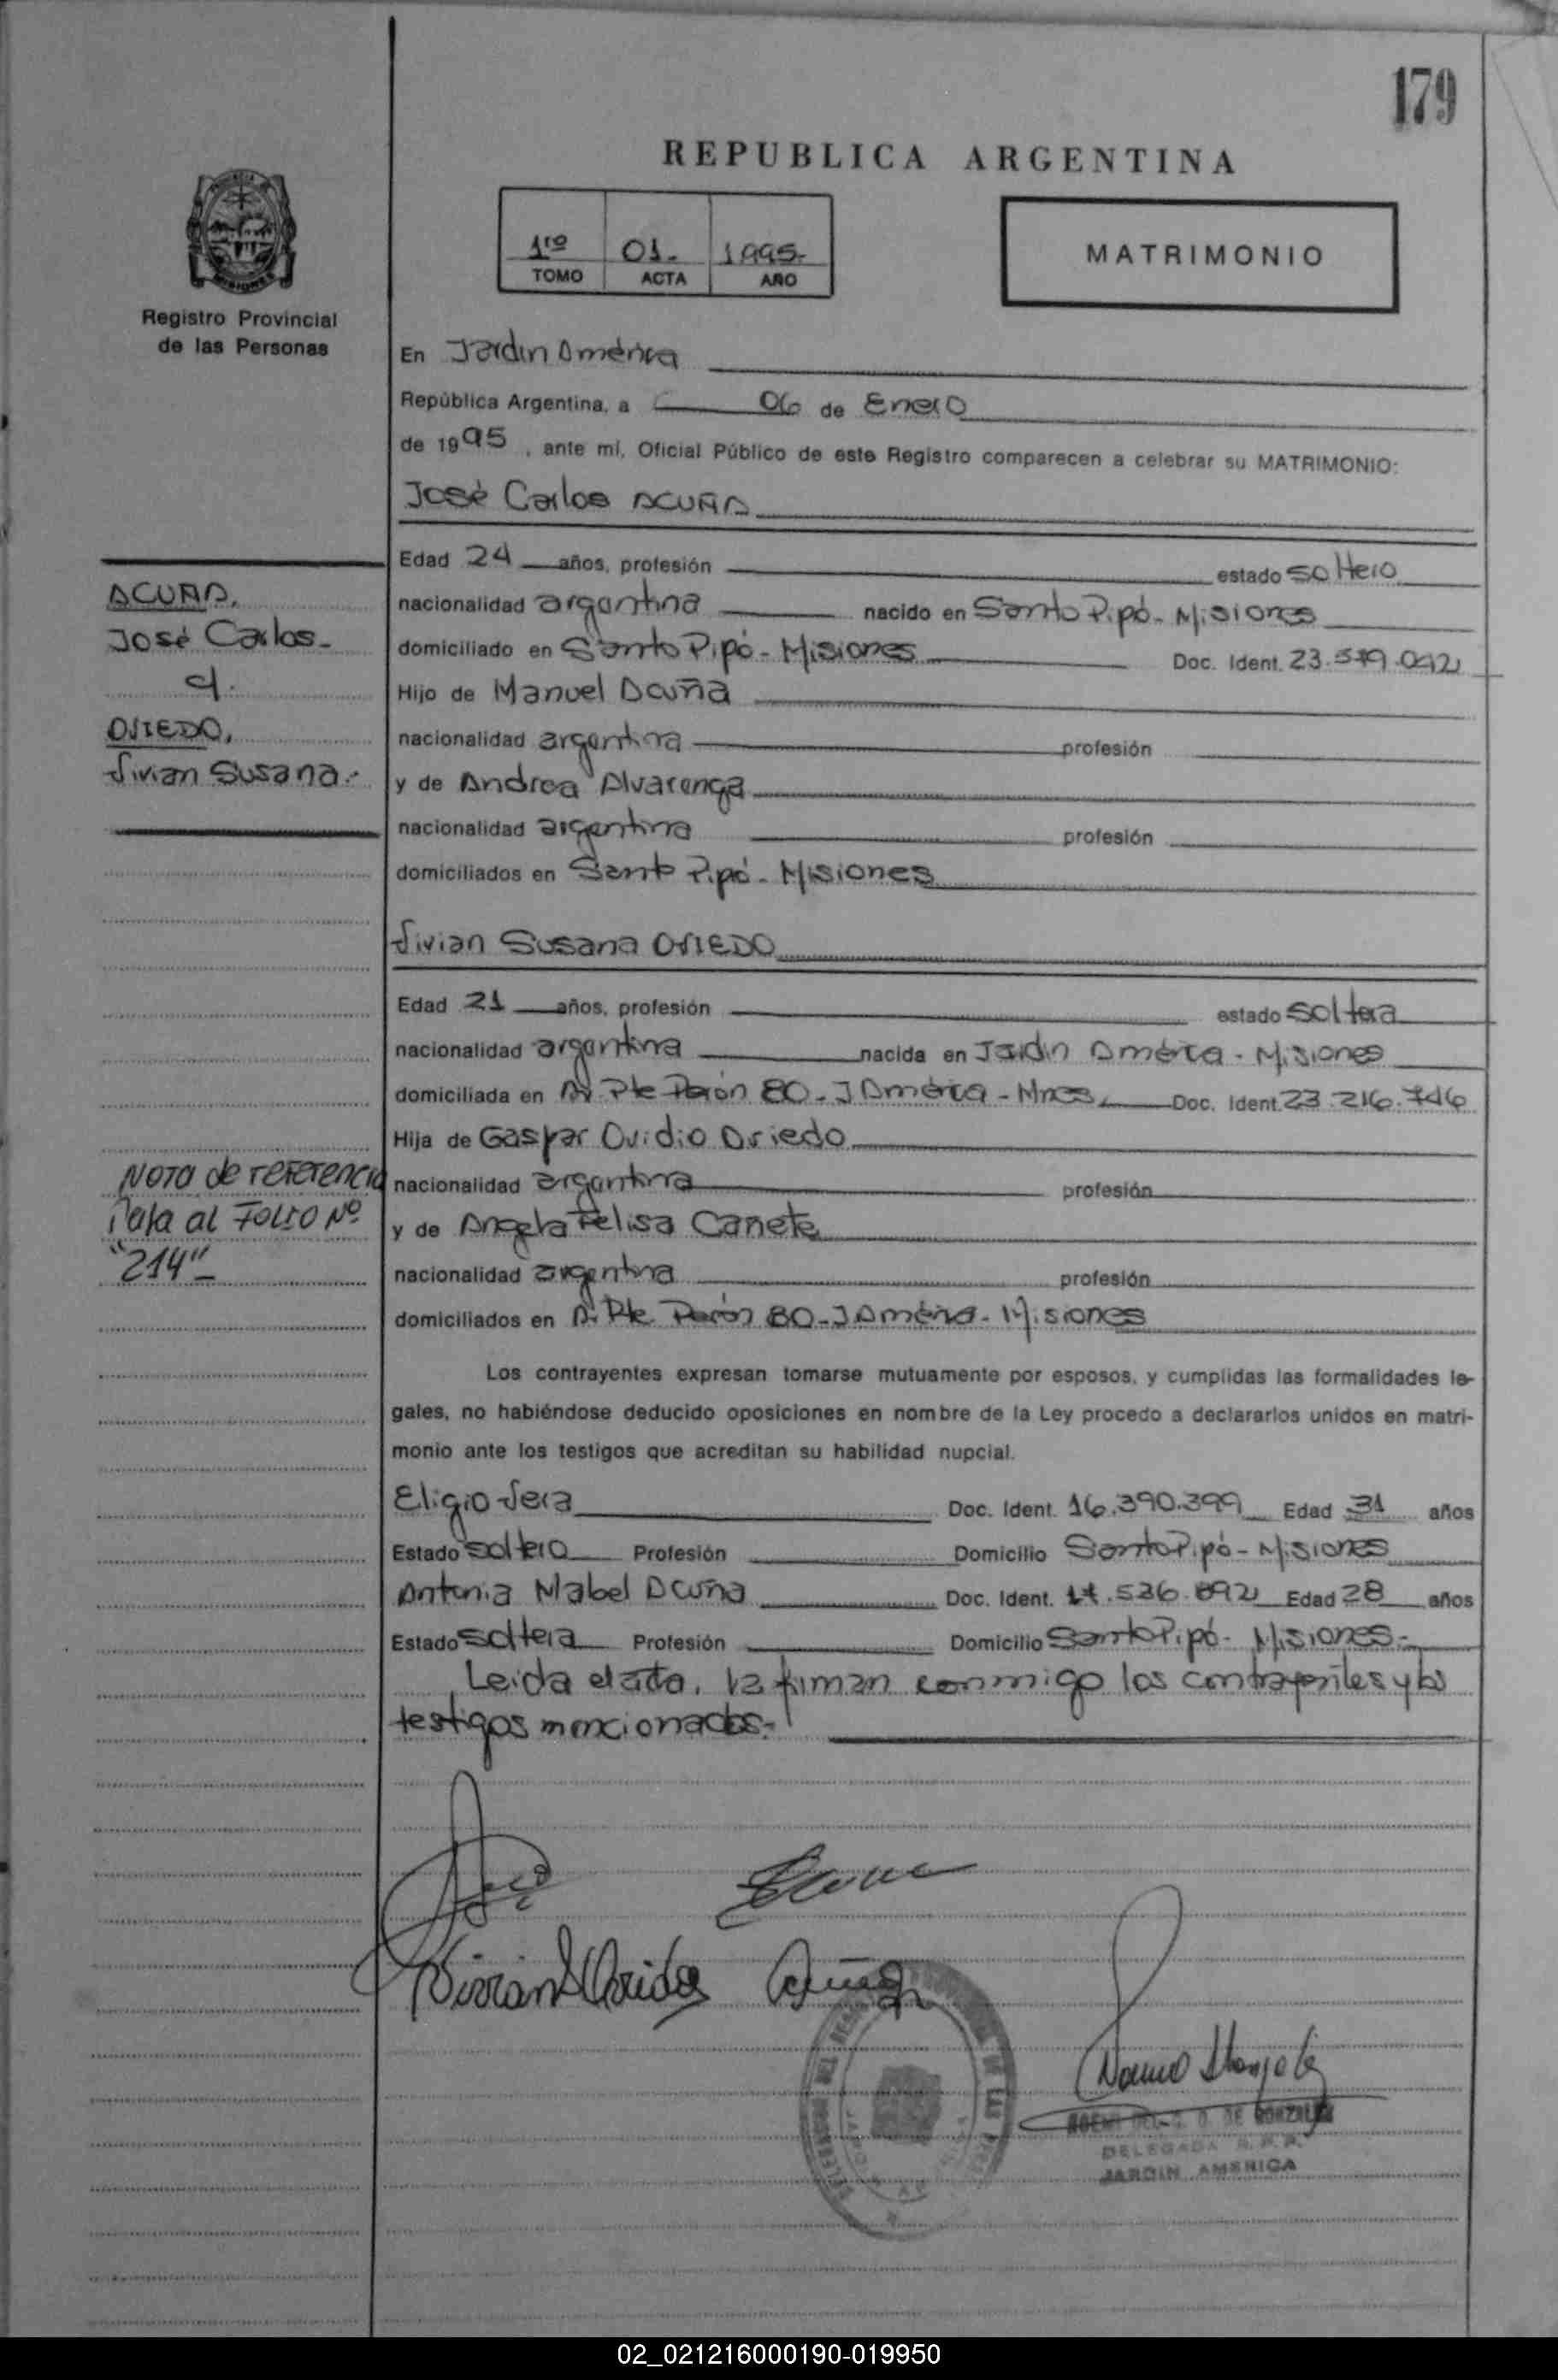 179
REPUBLICA ARGENTINA
1ro 01- 1995-
TOMO ACTA AÑO
MATRIMONIO
MISIONES
Registro Provincial
de las Personas
En Jardin América
República Argentina, a 06 de Enero
de 1995, ante mí, Oficial Público de este Registro comparecen a celebrar su MATRIMONIO:
José Carlos ACUÑA
Edad 24 años, profesión estado soltero
nacionalidad argentina nacido en Santo Pipó - Misiones
domiciliado en Santo Pipó - Misiones Doc. Ident.
Hijo de Manuel Acuña
nacionalidad argentina profesión
y de Andrea Alvarenga
nacionalidad argentina profesión
domiciliados en Santo Pipó - Misiones
Vivian Susana OVIEDO
Edad 21 años, profesión estado soltera
nacionalidad argentina nacida en Jardin América - Misiones
domiciliada en Av. Pte Perón 80 - J América - Mnes. Doc. Ident. 23.216.746
Hija de Gaspar Ovidio Oviedo
nacionalidad argentina profesión
y de Angela Felisa Cañete
nacionalidad argentina profesión
domiciliados en Av. Pte. Perón 80 - J América - Misiones
Los contrayentes expresan tomarse mutuamente por esposos, y cumplidas las formalidades le-
gales, no habiéndose deducido oposiciones en nombre de la Ley procedo a declararlos unidos en matri-
monio ante los testigos que acreditan su habilidad nupcial.
Eligio Vera Doc. Ident. 16.390.399 Edad 31 años
Estado soltero Profesión Domicilio Santo Pipó - Misiones
Antonia Mabel Acuña Doc. Ident. Edad 28 años
Estado soltera Profesión Domicilio Santo Pipó - Misiones.-
Leida el acta, la firman conmigo los contrayentes y los
testigos mencionados.-
ACUÑA,
José Carlos-
c/.
OVIEDO,
Vivian Susana.-
NOTA de referencia
Pasa al FOLIO Nº
"214"-
Vivian S Oviedo Acuña
DE GONZALEZ
DELEGADA R. P. P.
JARDIN AMERICA
02_021216000190-019950